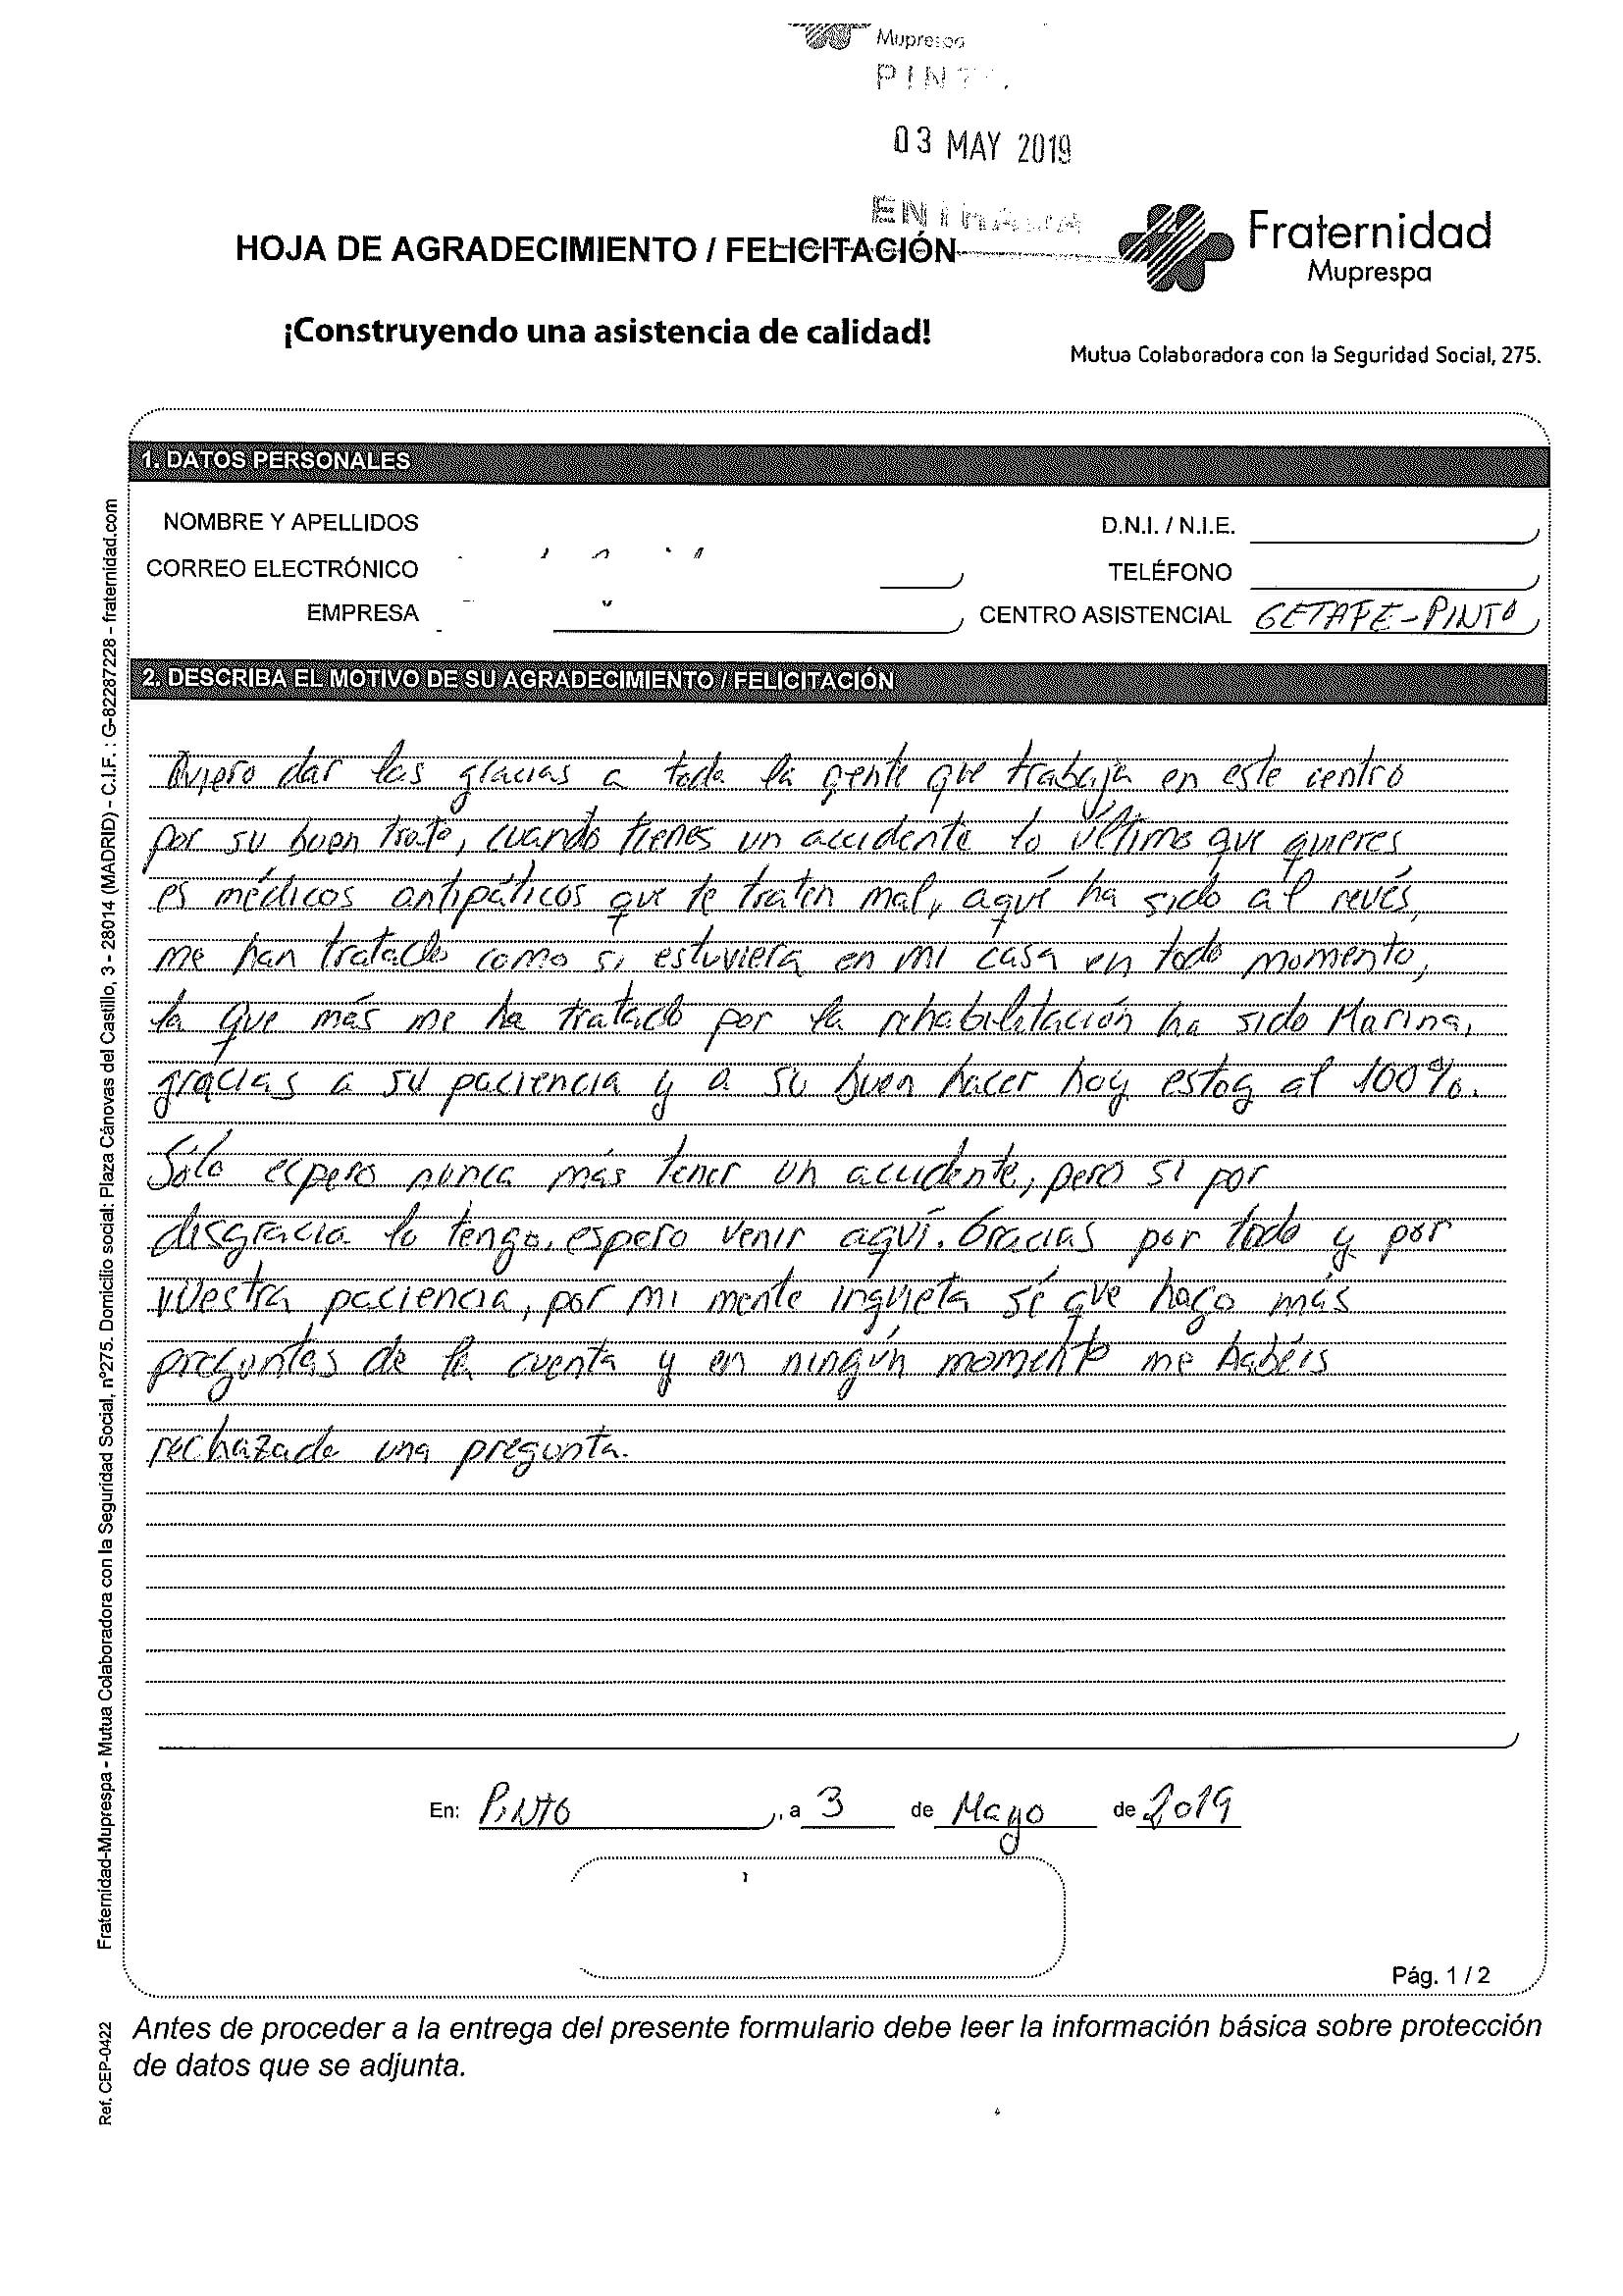 Muprespa
PINTO
03 MAY 2019
ENTRADA
HOJA DE AGRADECIMIENTO / FELICITACIÓN
Fraternidad
Muprespa
¡Construyendo una asistencia de calidad!
Mutua Colaboradora con la Seguridad Social, 275.
1. DATOS PERSONALES
NOMBRE Y APELLIDOS
D.N.I. / N.I.E.
CORREO ELECTRÓNICO
TELÉFONO
EMPRESA
CENTRO ASISTENCIAL GETAFE-PINTO
2. DESCRIBA EL MOTIVO DE SU AGRADECIMIENTO / FELICITACIÓN
Quiero dar las gracias a toda la gente que trabaja en este centro
por su buen trato, cuando tienes un accidente lo último que quieres
es médicos antipáticos que te traten mal, aquí ha sido al revés,
me han tratado como si estuviera en mi casa en todo momento,
la que más me ha tratado por la rehabilitación ha sido Marina,
gracias a su paciencia y a su buen hacer hoy estoy al 100%.
Sólo espero nunca más tener un accidente, pero si por
disgracia lo tengo, espero venir aquí. Gracias por todo y por
vuestra paciencia, por mi mente inquieta sé que hago más
preguntas de la cuenta y en ningún momento me habéis
rechazado una pregunta.
En: PINTO, a 3 de Mayo de 2019
Pág. 1 / 2
Antes de proceder a la entrega del presente formulario debe leer la información básica sobre protección
de datos que se adjunta.
Fraternidad-Muprespa - Mutua Colaboradora con la Seguridad Social, nº275. Domicilio social: Plaza Cánovas del Castillo, 3 - 28014 (MADRID) - C.I.F. : G-82287228 - fraternidad.com
Ref. CEP-0422